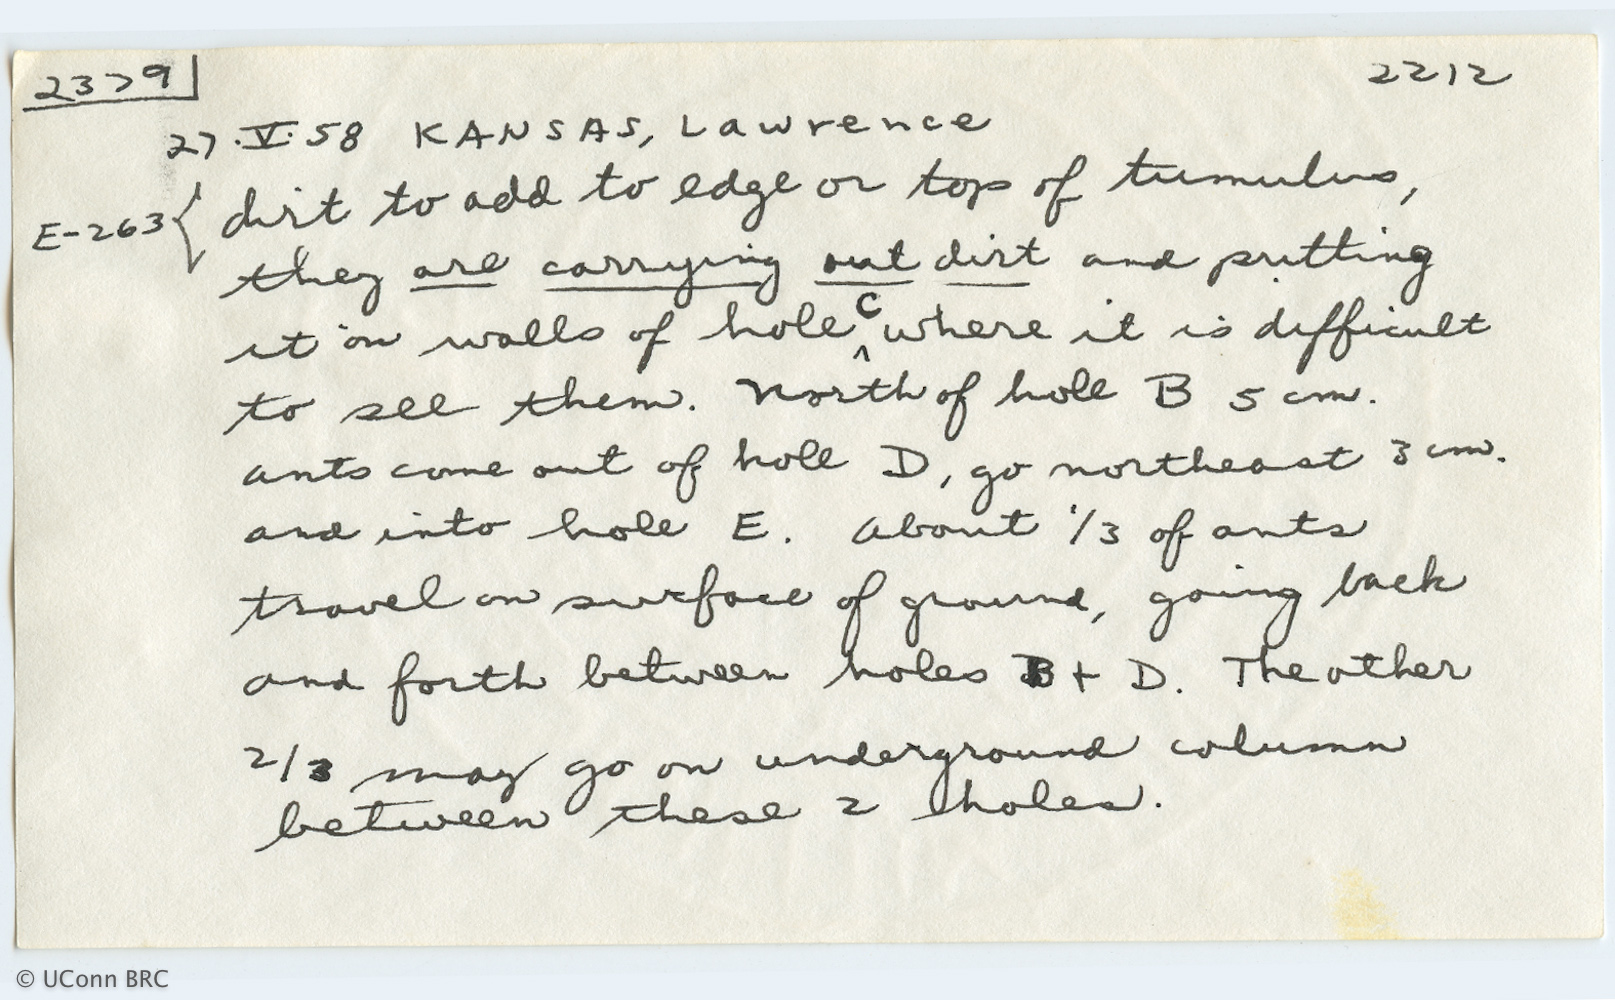 2379 2212
27.V.58 KANSAS, Lawrence
E-263 { dirt to add to edge or top of tumulus,
they are carrying out dirt and putting
it on walls of hole C where it is difficult
to see them. North of hole B 5 cm.
ants come out of hole D, go northeast 3 cm.
and into hole E. About 1/3 of ants
travel on surface of ground, going back
and forth between holes B + D. The other
2/3 may go on underground column
between these 2 holes.
© UConn BRC